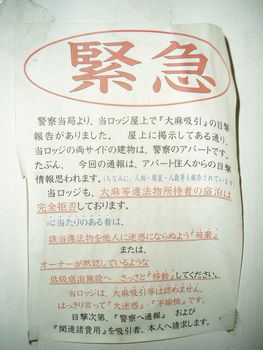 緊急
警察当局より、当ロッジ屋上で『大麻吸引』の目撃
報告がありました。 屋上に掲示してある通り、
当ロッジの両サイドの建物は、警察のアパートです。
たぶん、 今回の通報は、アパート住人からの目撃
情報思われます。(ちなみに、人相・服装・人数等も報告されています)
当ロッジも、大麻等違法物所持者の宿泊は
完全拒否しております。
心当たりのある者は、
該当違法物を他人に迷惑にならぬよう『破棄』
または、
オーナーが黙認しているような
低級宿泊施設へ さっさと『移動』してください。
当ロッジは、大麻吸引等は認めません。
はっきり言って『大迷惑』・『不愉快』です。
目撃次第、『警察へ通報』 および
『関連諸費用』を吸引者、本人へ請求します。